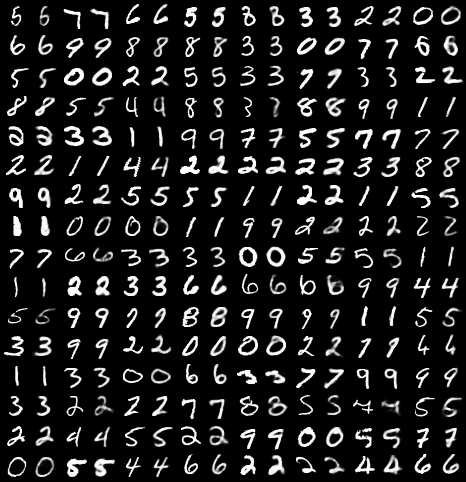 5 6 7 7 6 6 5 5 8 8 3 3 2 2 0 0
6 6 9 9 8 8 8 8 3 3 0 0 7 7 6 6
5 5 0 0 2 2 5 5 3 3 7 7 3 3 2 2
8 8 5 5 4 4 8 8 3 7 8 8 9 9 1 1
2 3 3 3 1 1 9 9 7 7 5 5 7 7 7 7
2 2 1 1 4 4 2 2 2 2 2 2 3 3 8 8
9 9 2 2 5 5 5 5 1 1 2 2 1 1 5 5
1 1 0 0 0 0 1 1 9 9 2 2 2 2 2 2
7 7 6 6 3 3 3 3 0 0 5 5 5 5 1 1
1 1 2 2 3 3 6 6 6 6 6 6 9 9 4 4
5 5 9 9 7 7 8 8 9 9 9 9 1 1 5 5
3 3 9 9 2 2 0 0 0 0 2 2 7 7 4 4
1 1 3 3 0 0 6 6 3 3 7 7 9 9 9 9
3 3 2 2 2 2 7 7 8 8 5 5 4 4 5 5
2 2 4 4 5 5 2 2 9 9 0 0 5 5 7 7
0 0 5 5 4 4 6 6 2 2 2 2 4 4 6 6